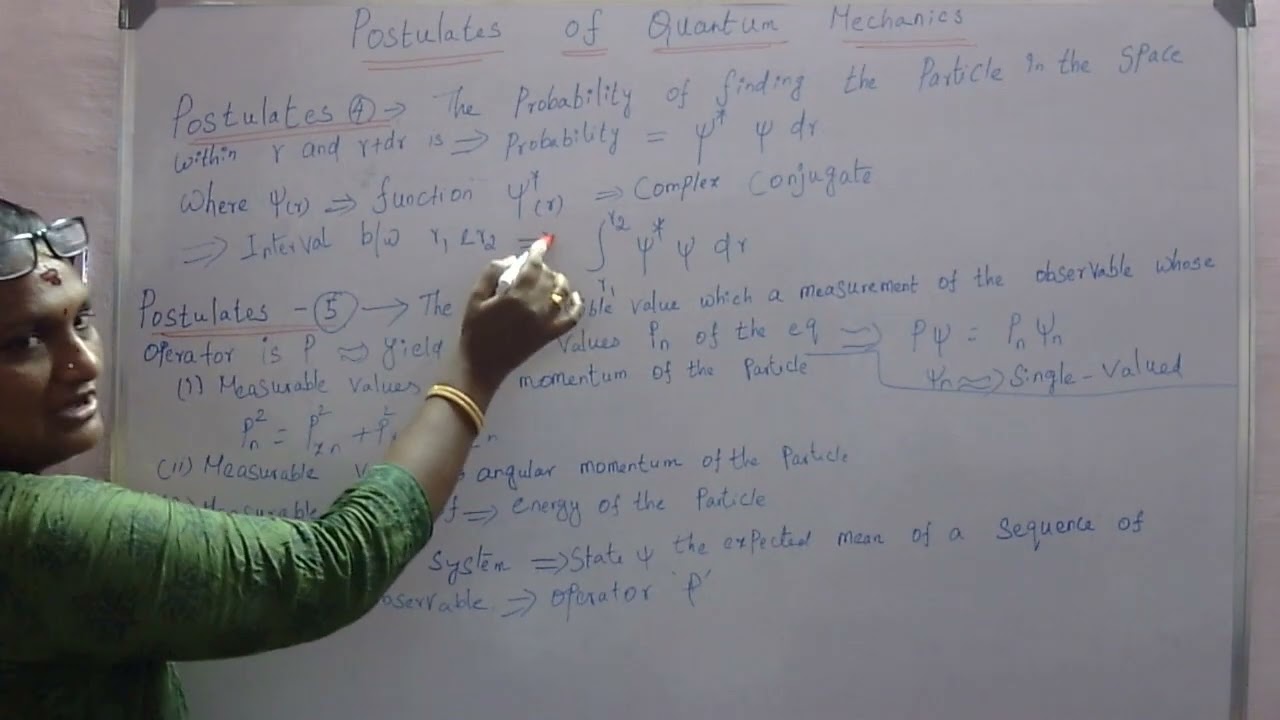 Postulates of Quantum Mechanics
Postulates ④ → The Probability of finding the Particle in the space
within r and r+dr is ⇒ Probability = ψ* ψ dr
Where ψ(r) ⇒ function ψ*(r) ⇒ Complex Conjugate
⇒ Interval b/w r₁ & r₂ = ∫r₁^r₂ ψ* ψ dr
Postulates - ⑤ → The value which a measurement of the observable whose
operator is P ≈ yield values Pn of the eq ⇒ Pψ = Pn ψn
ψn ≈> Single-valued
(i) Measurable values momentum of the Particle
Pn² = Pxn² + P²
(ii) Measurable angular momentum of the Particle
⇒ energy of the Particle
system ⇒ State ψ the expected mean of a sequence of
⇒ operator 'P'